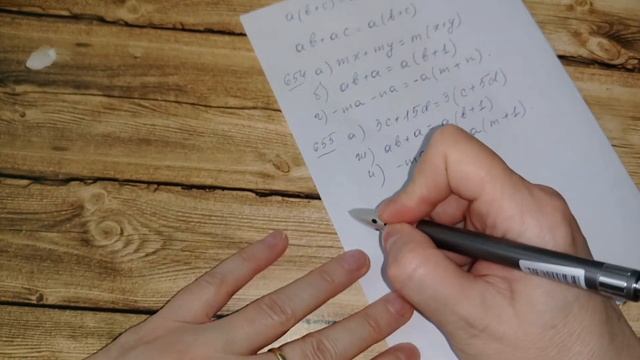 a(b+c)=
ab+ac=a(b+c)
654 а) mx+my=m(x+y)
б) ab+a=a(b+1)
г) -ma-na=-a(m+n).
655 а) 3c+15d=3(c+5d)
ж) ab+a=a(b+1)
и) -ma a(m+1).